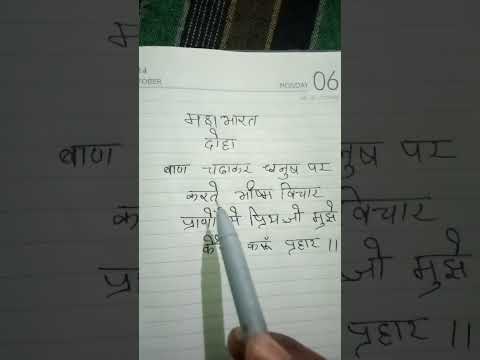 OCTOBER
MONDAY 06
महाभारत
दोहा
बाण चढाकर धनुष पर
करते भीष्म विचार
प्राणों से प्रिय जो मुझे
कैसे करूँ प्रहार ।।